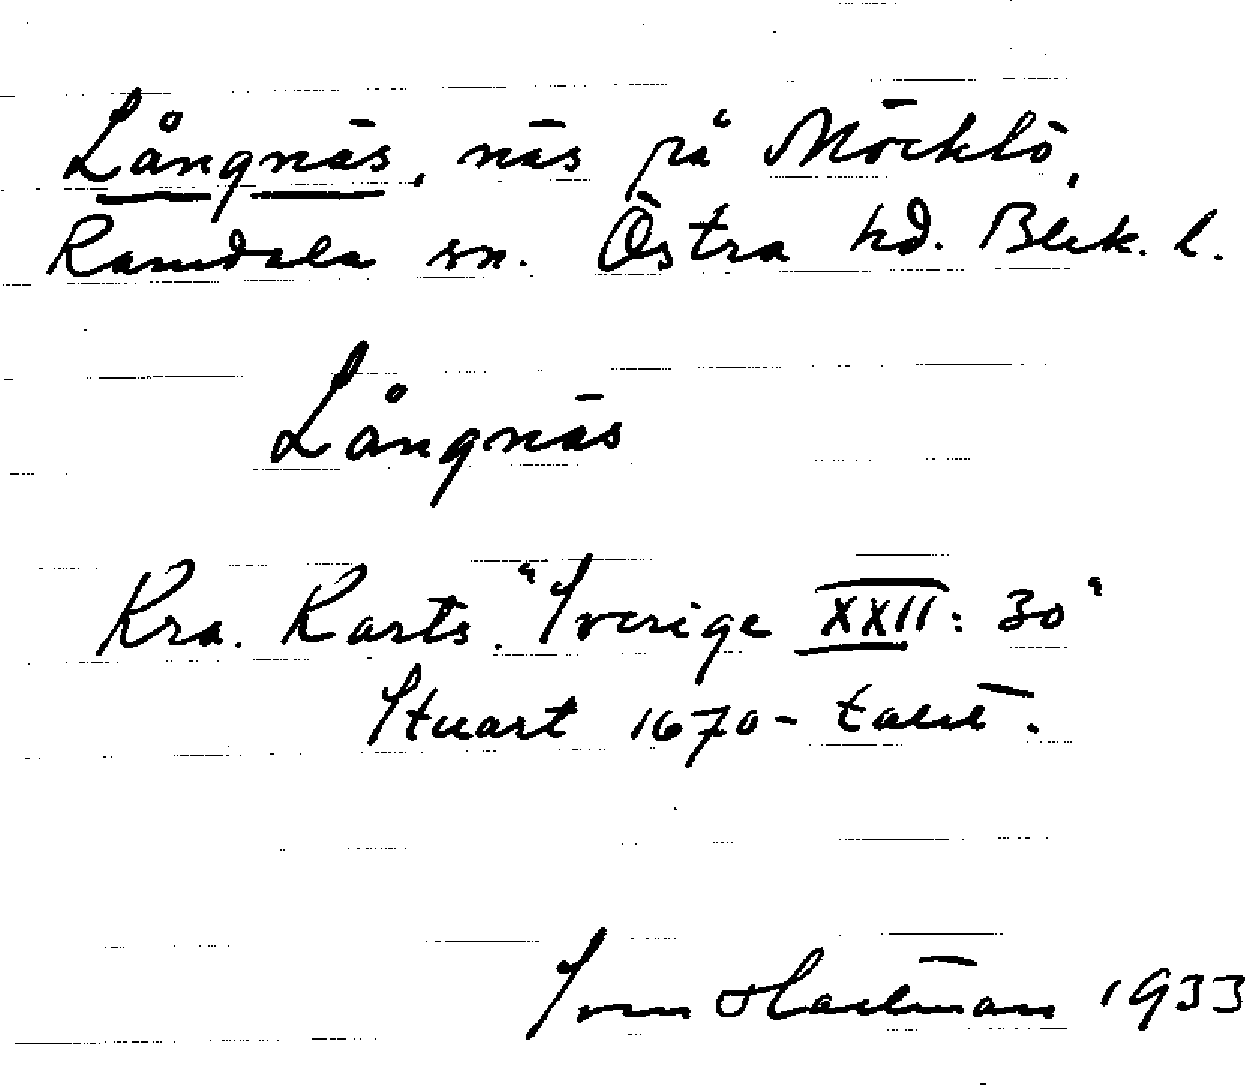 Långnäs, näs på Möcklö,
Ramdala sn. Östra hd. Blek. l.
Långnäs
Kra. Karts. "Sverige XXII: 30"
Stuart 1670-talet.
Sven Hartman 1933